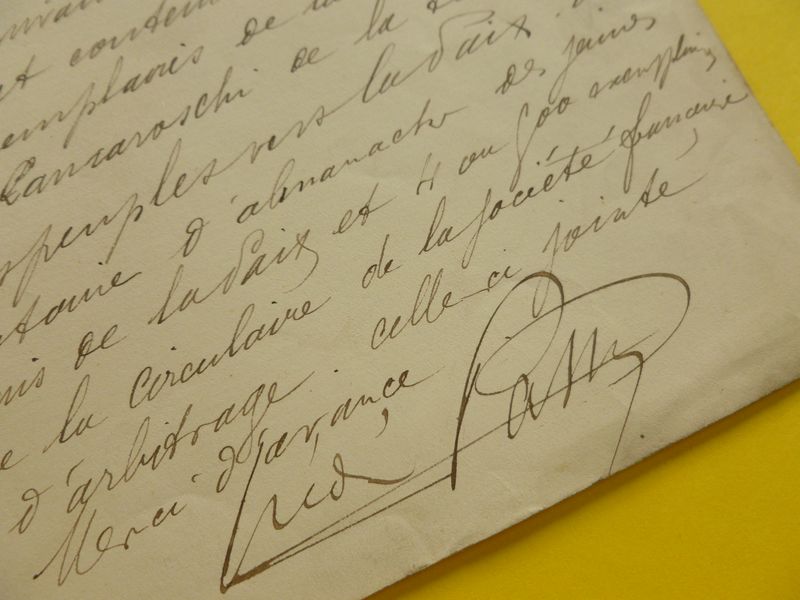 contenant
emplaires de
Lancaroschi de la
peuples vers la Paix
d'almanachs des jeunes
amis de la Paix et 4 ou 500 exemplaires
de la circulaire de la société française
d'arbitrage. celle-ci jointe
Merci d'avance,
Fréd Passy